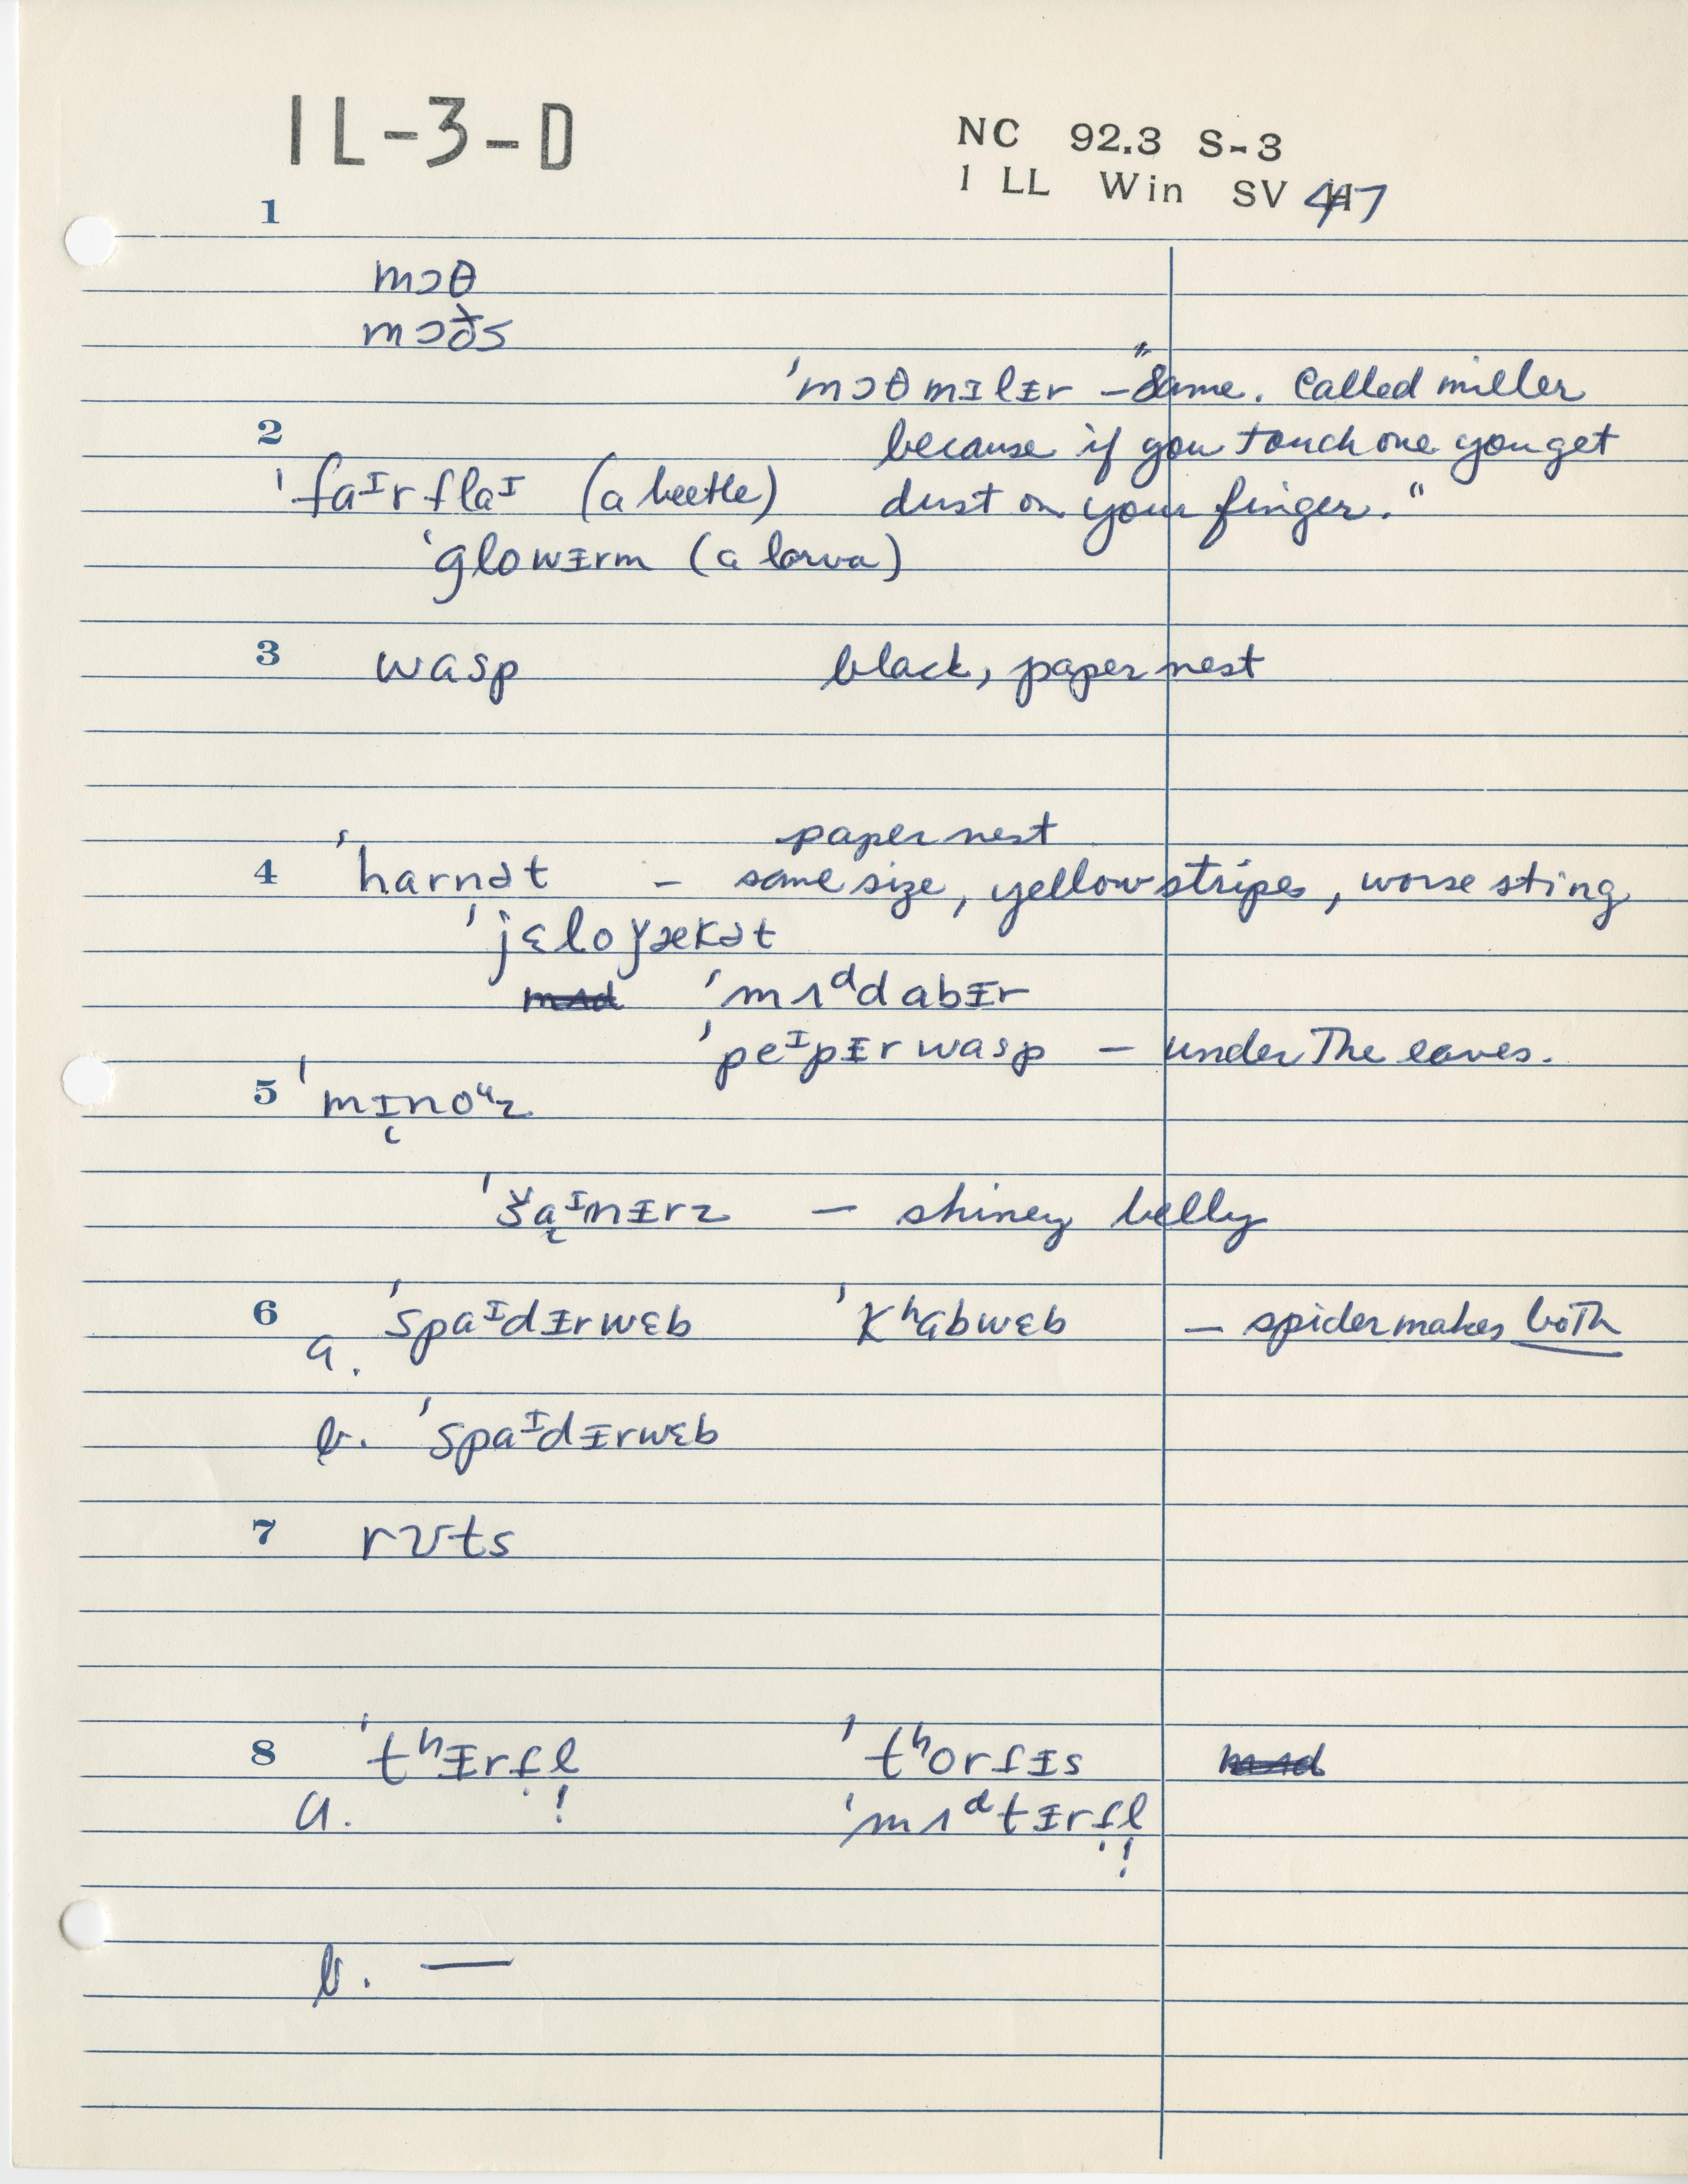 IL-3-D
NC 92.3 S-3
1 LL Win SV 47
1
mɔθ
mɔðs
ˈmɔθmɪlɪ̵r – "Same. Called miller
because if you touch one you get
dust on your finger."
2
ˈfaᴵrflaᴵ (a beetle)
ˈglowɪ̵rm (a larva)
3 wasp black, paper nest
paper nest
4 ˈharnət – same size, yellow stripes, worse sting
ˈjɛloǰækət
ˈmʌᵈdabɪ̵r
ˈpeᴵpɪ̵rwasp – under The eaves.
5 ˈmɪnoᵘz
ˈšaᴵnɪ̵rz – shiney belly
6 ˈspaᴵdɪ̵rwɛb ˈkʰabwɛb – spider makes both
a.
b. ˈspaᴵdɪ̵rwɛb
7 rʊts
8 ˈtʰɪ̵rtl̩ ˈtʰortɪ̵s
a. ˈmʌᵈtɪ̵rtl̩
b. —